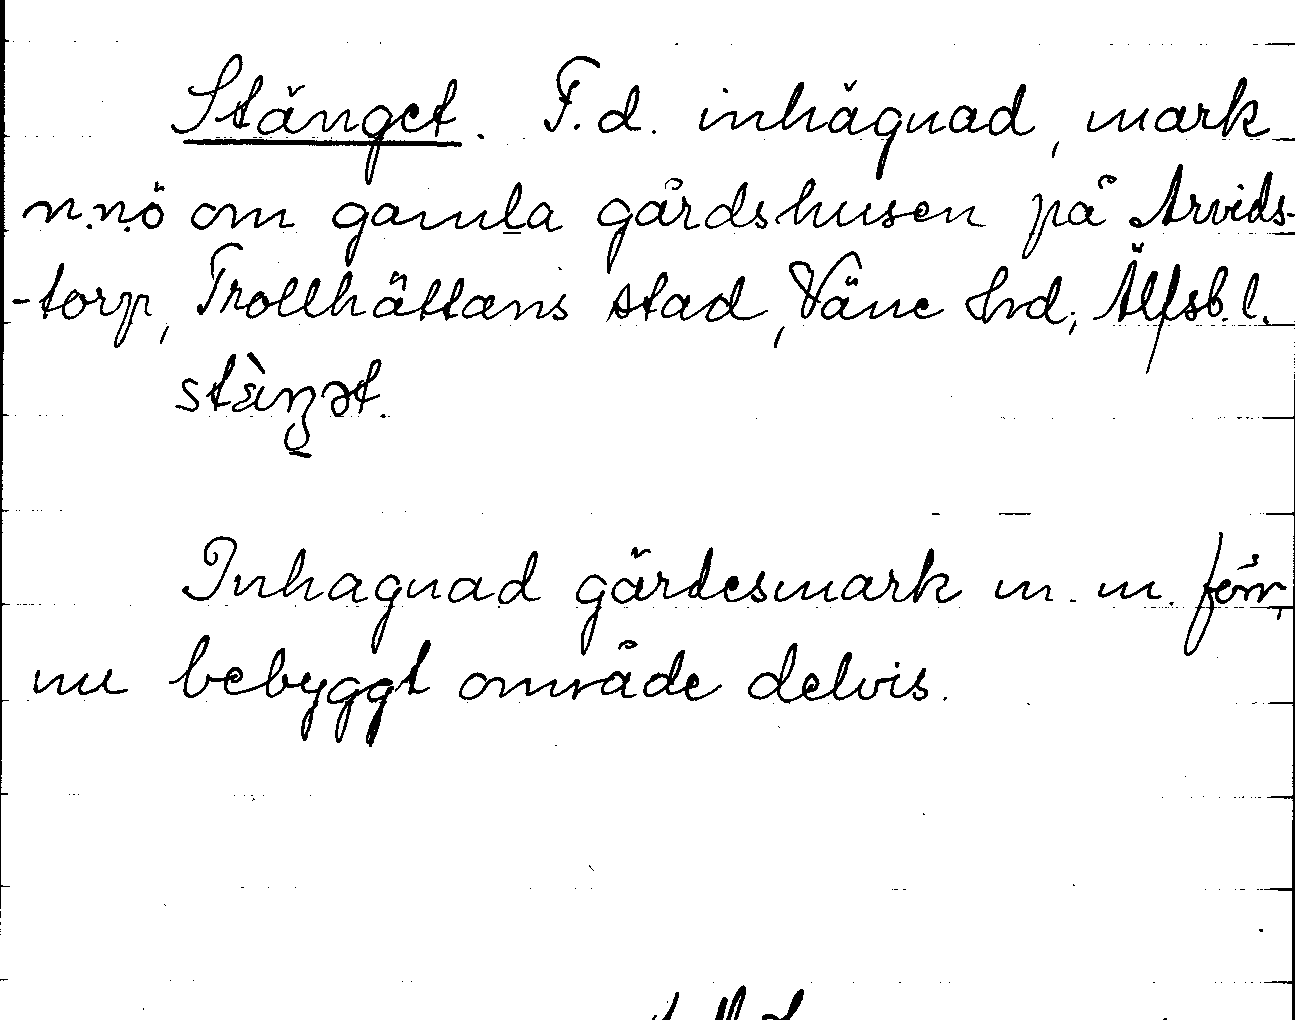 Stänget. F.d. inhägnad, mark
n.n.ö om gamla gårdshusen på Arvids-
-torp, Trollhättans stad, Väne hrd, Älfsb.l.
stàŋət.
Inhagnad gärdesmark m.m. förr,
nu bebyggt område delvis.